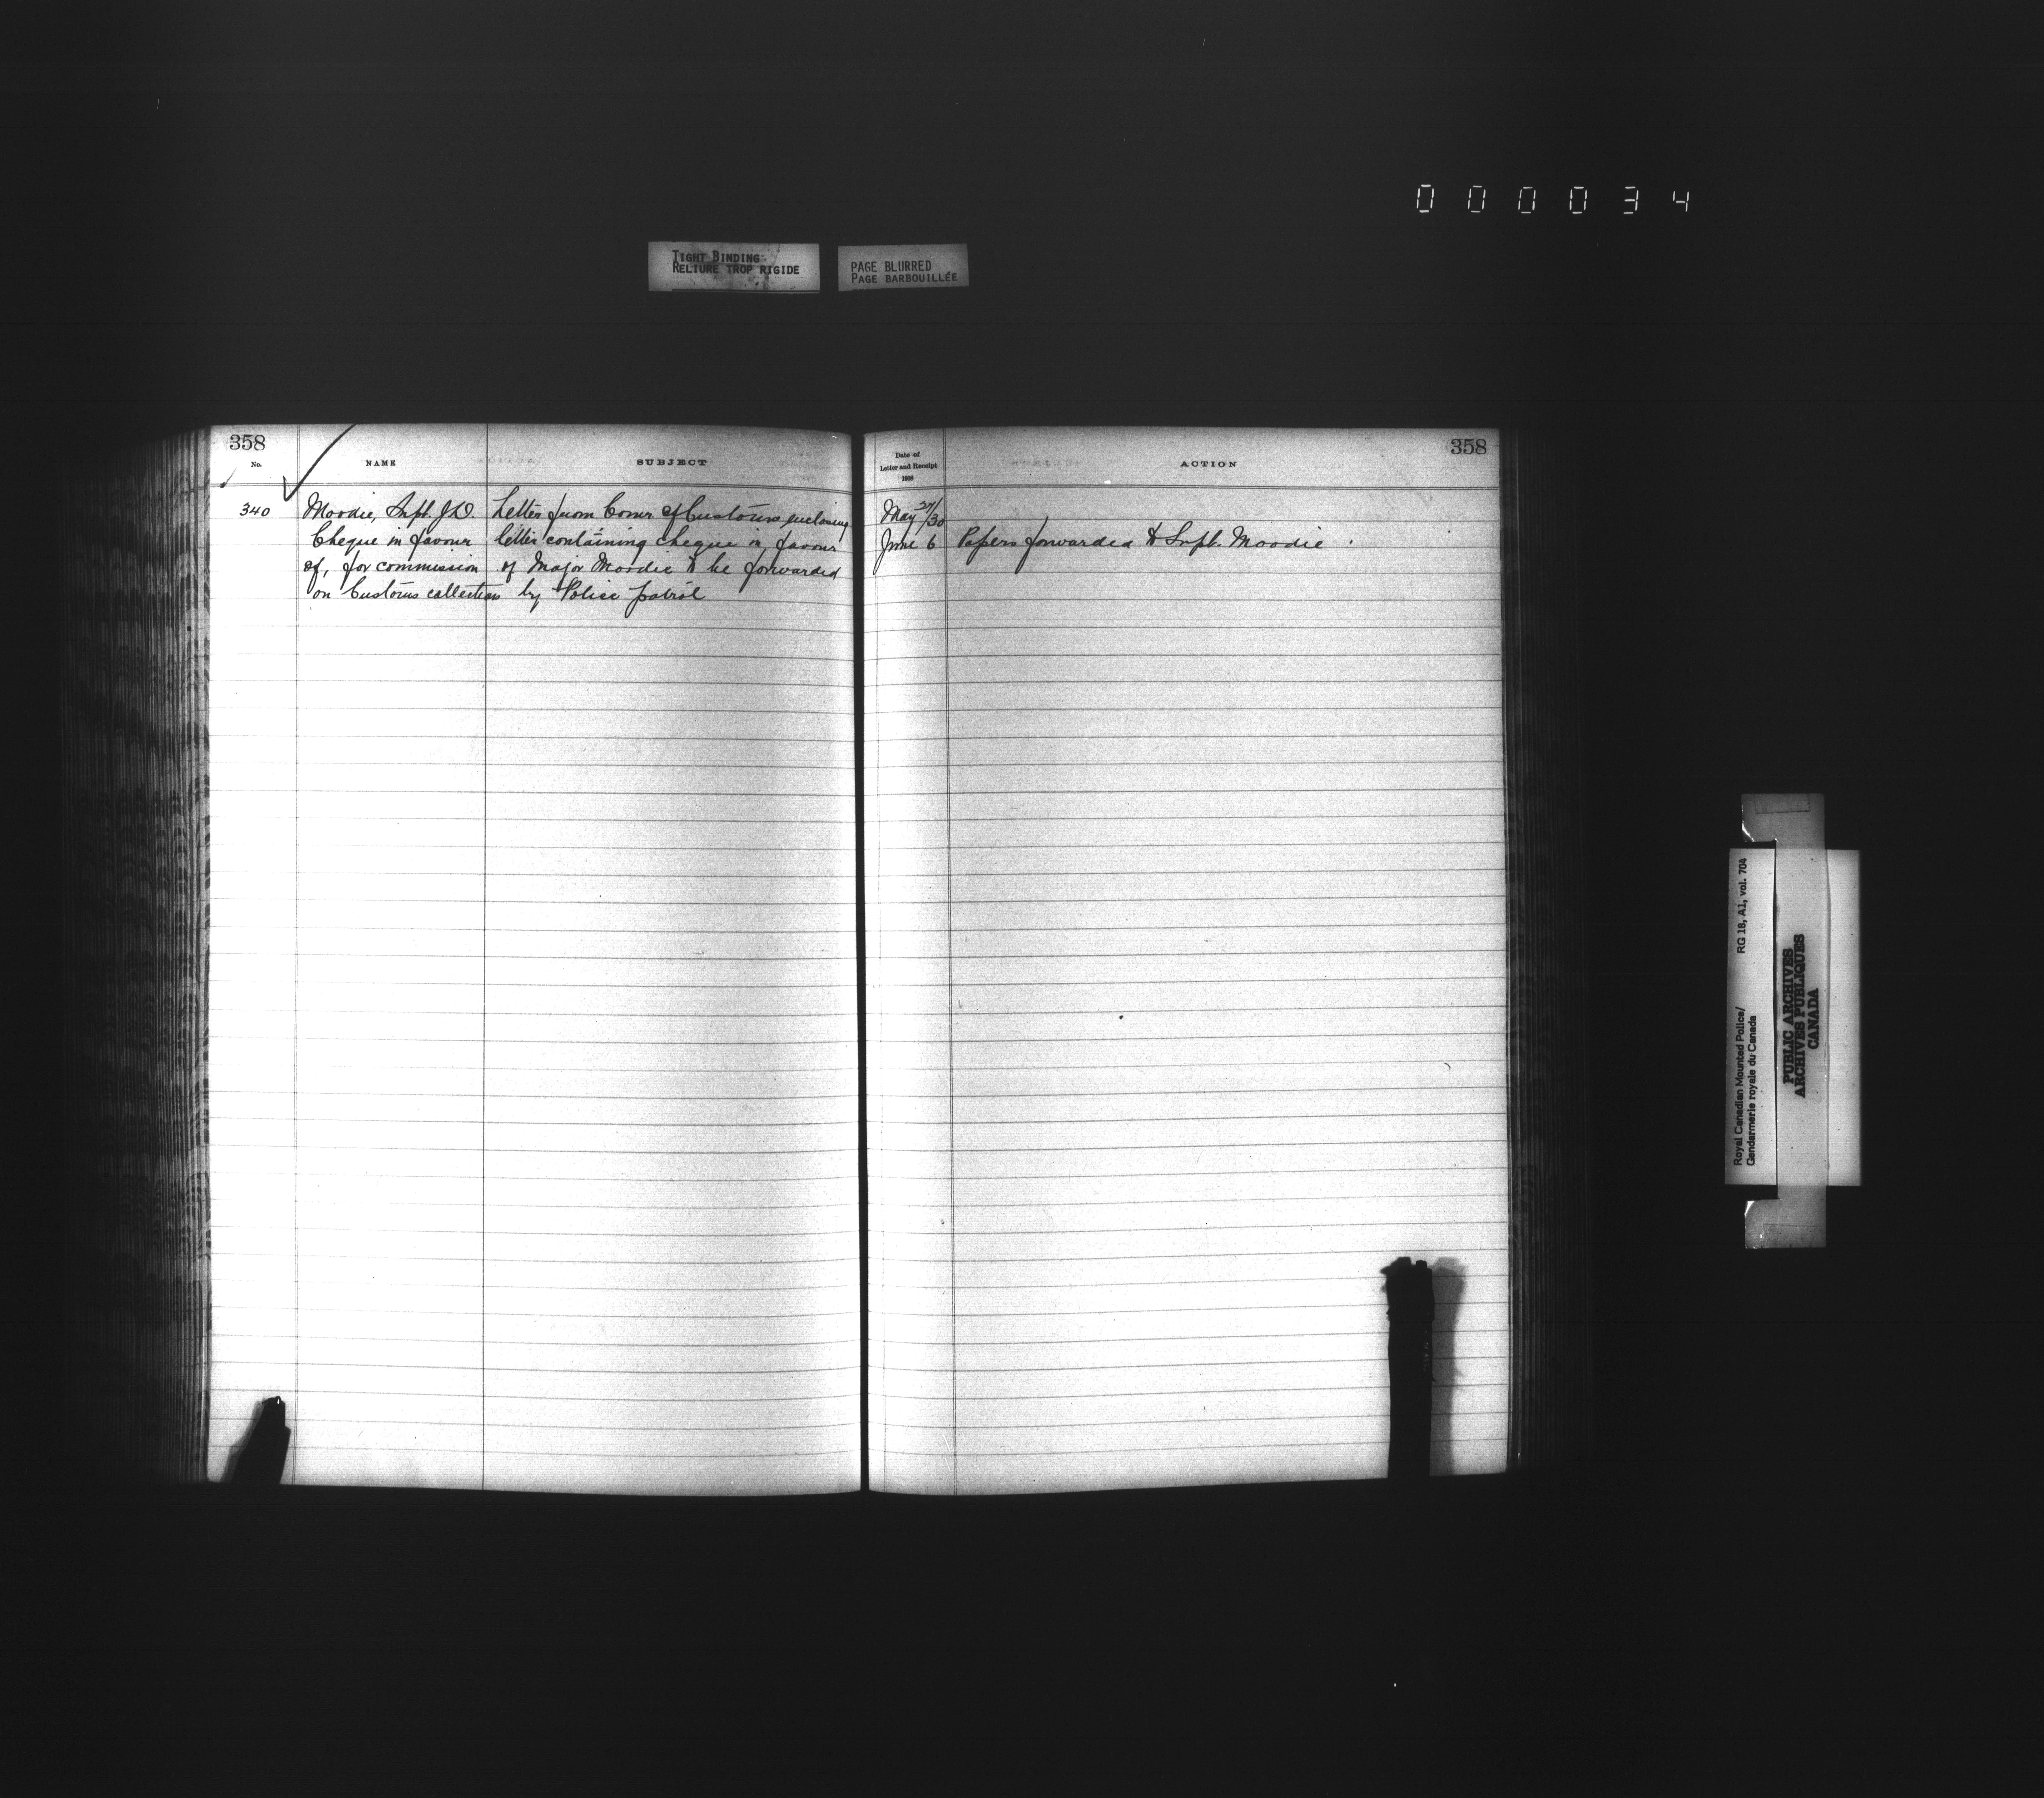 000034
TIGHT BINDING
RELIURE TROP RIGIDE
PAGE BLURRED
PAGE BARBOUILLÉE
358
No.
NAME
SUBJECT
340
Moodie, Supt. J.D.
Cheque in favour
of, for commission
on Customs collection
Letter from Comr. of Customs enclosing
letter containing cheque in favour
of Major Moodie to be forwarded
by Police patrol
358
Date of
Letter and Receipt
1908
ACTION
May 27/30
June 6 Papers forwarded to Supt. Moodie.
Royal Canadian Mounted Police/ RG 18, A1, vol. 704
Gendarmerie royale du Canada
PUBLIC ARCHIVES
ARCHIVES PUBLIQUES
CANADA